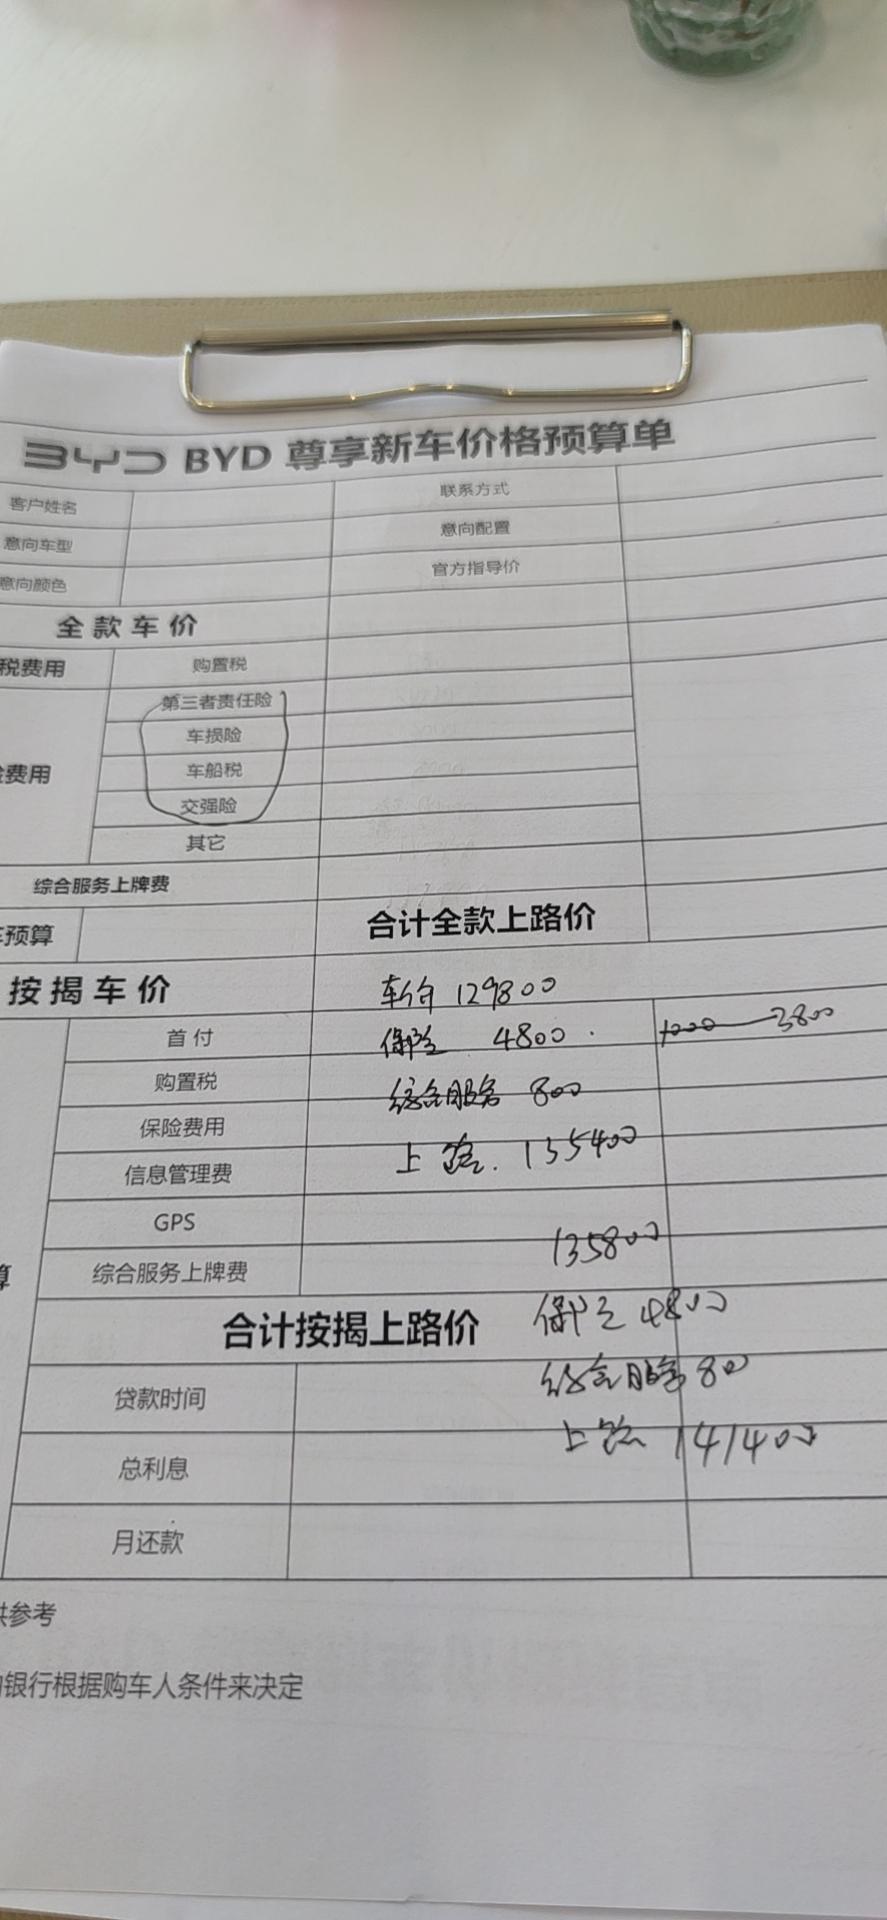 BYD BYD 尊享新车价格预算单
客户姓名 联系方式
意向车型 意向配置
意向颜色 官方指导价
全款车价
税费用 购置税
第三者责任险
车损险
费用 车船税
交强险
其它
综合服务上牌费
预算 合计全款上路价
按揭车价 车价 129800
首付 保险 4800 1000 3800
购置税 综合服务 800
保险费用 上路. 135400
信息管理费
GPS
135800
算 综合服务上牌费
合计按揭上路价 保险 4800
综合服务 800
贷款时间
上路 141400
总利息
月还款
供参考
银行根据购车人条件来决定